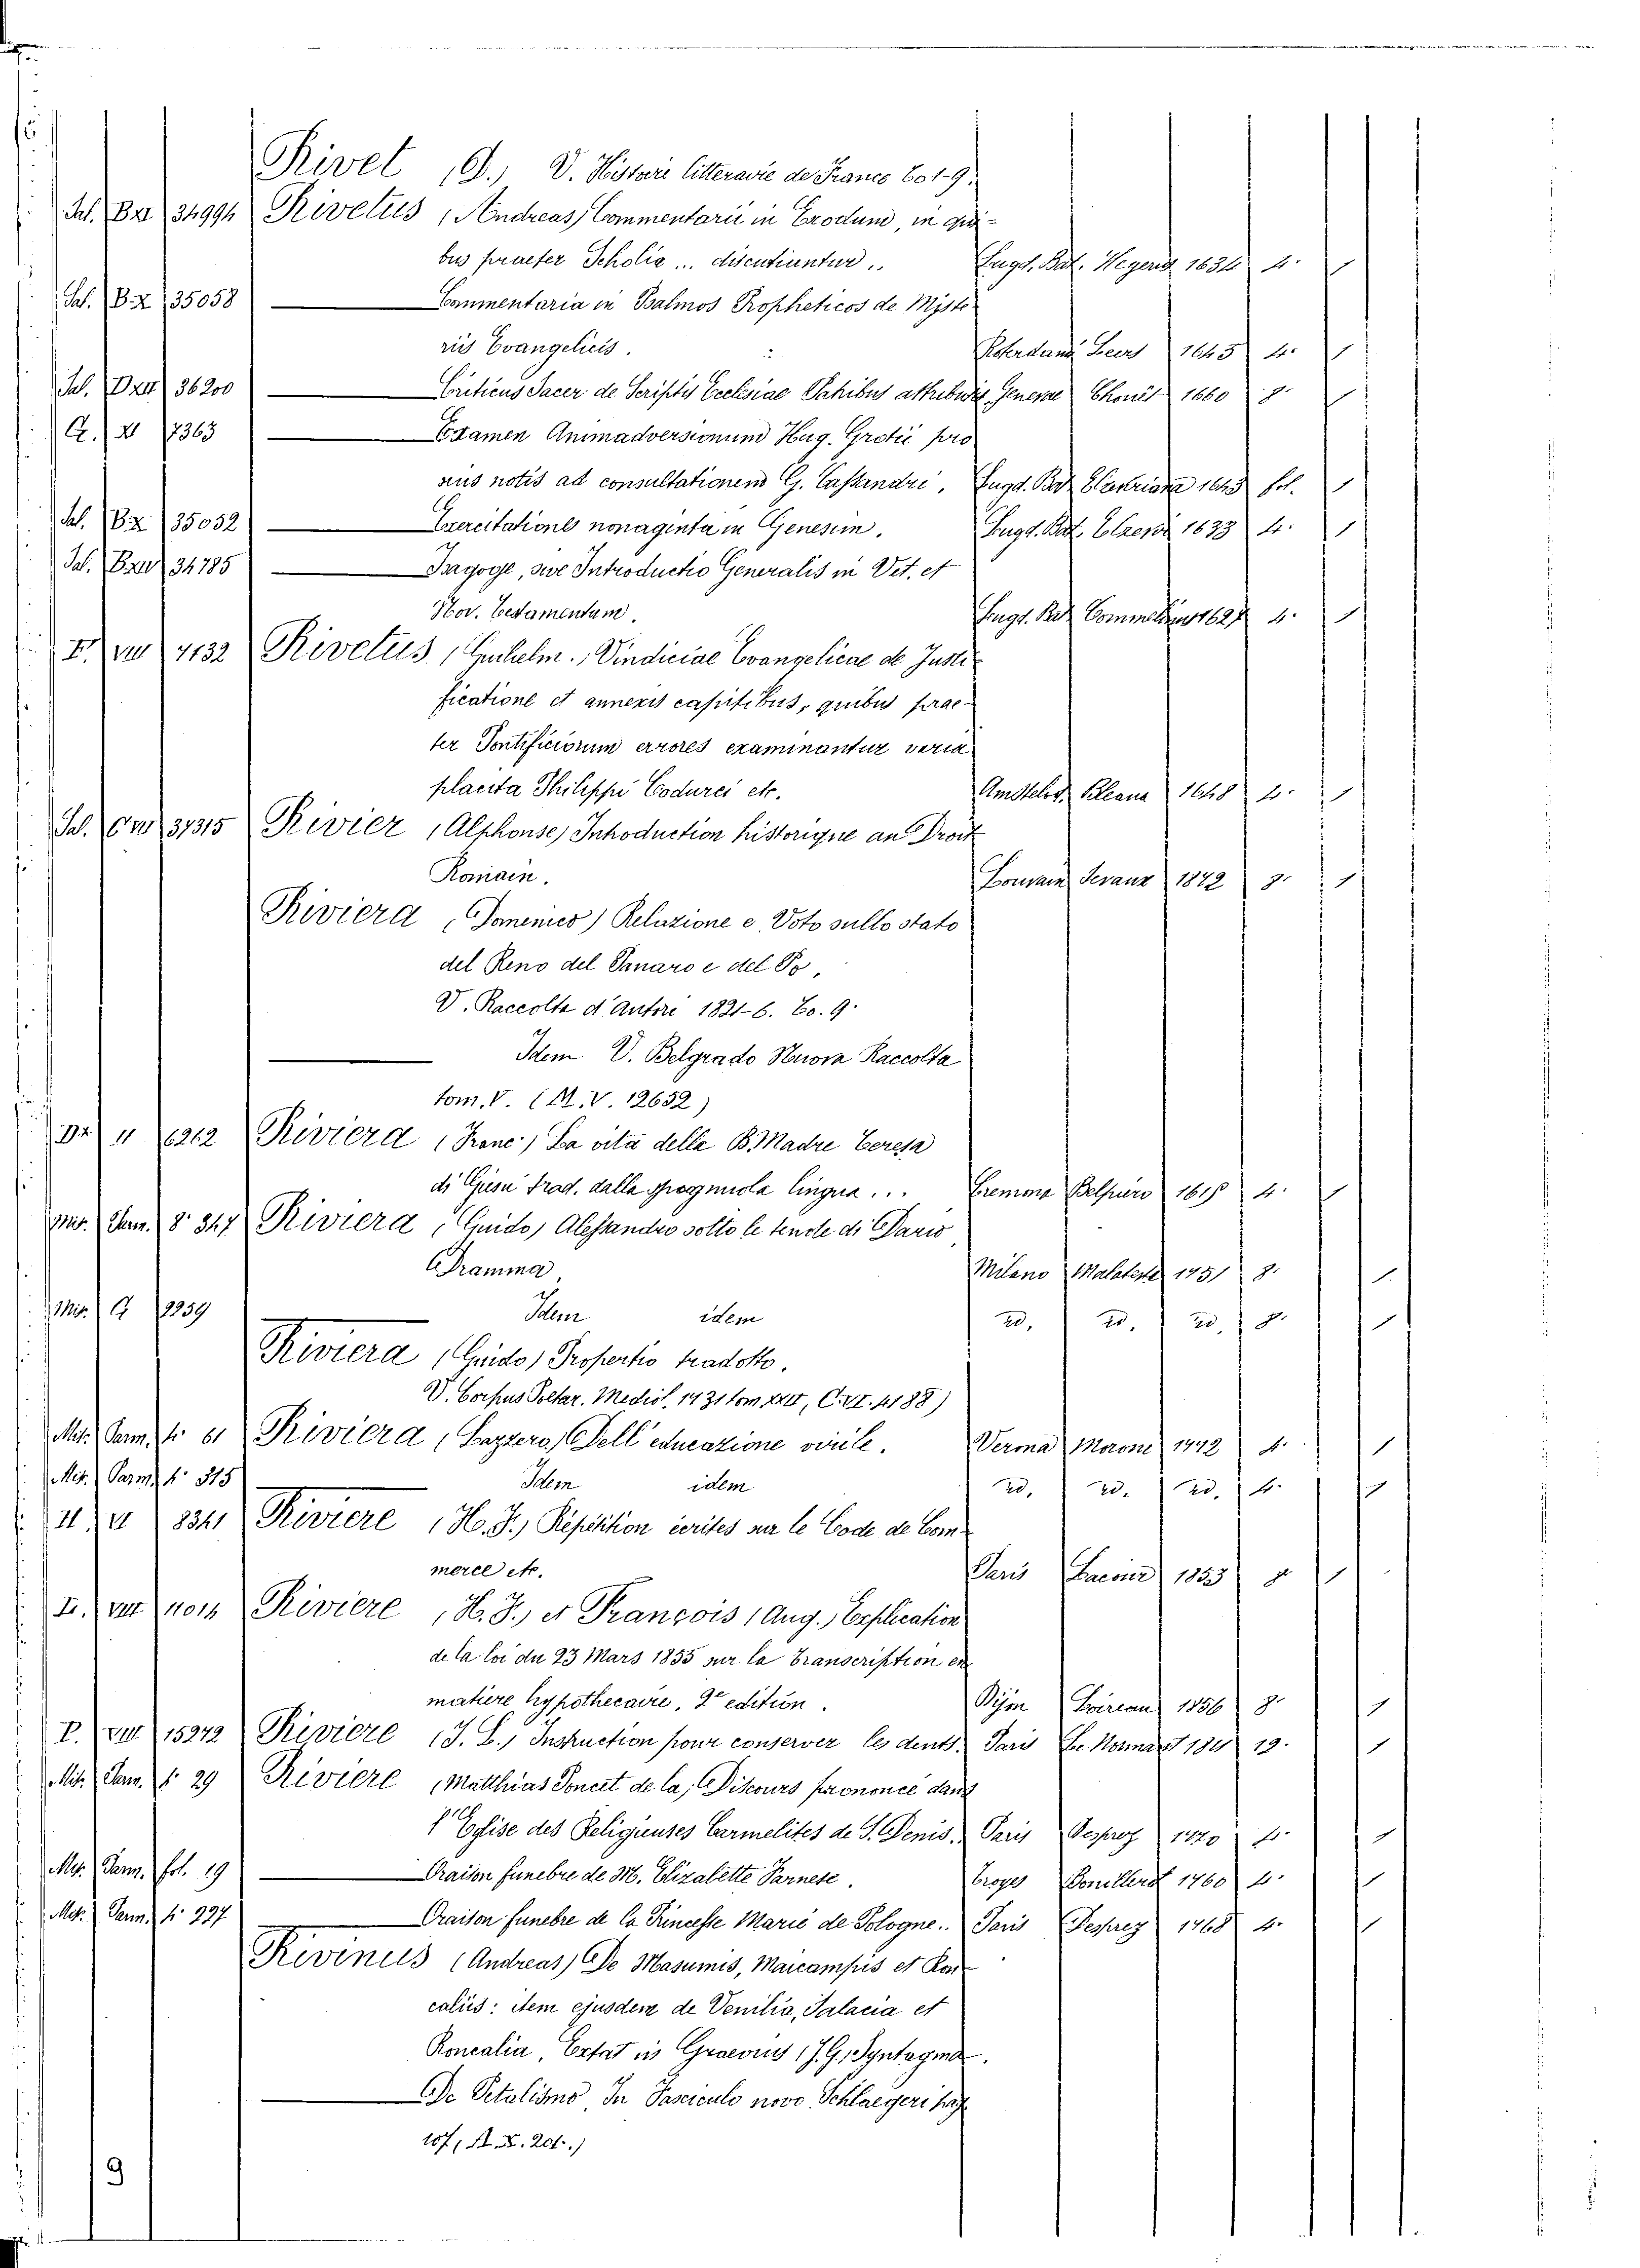 Rivet (D.) V. Histoire litteraire de France to 1-9.
Sal. Bxx 34994 Rivetus (Andreas) Commentarii in Exodum, in qui-
bus praeter Scholia... discutiuntur.. Lugd. Bat. Hegerig 1634 4. 1
Sal. B.x 35058 Commentaria in Psalmos Propheticos de Myste-
riis Evangelicis. Roterdami Leers 1645 4. 1
Sal. 36200 Criticus Sacer de Scriptis Ecclesiae Patribus attributis Genevae Chouët 1660 8. 1
G. XI 7363 Examen Animadversionum Hug. Grotii pro
suis notis ad consultationem G. Cassandri, Lugd. Bat. Elzeviriana 1643 fol. 1
Sal. Bx 35052 Exercitationes nonaginta in Genesim. Lugd. Bat. Elzevir 1633 4. 1
Sal. Bxx 34785 Isagoge, sive Introductio Generalis in Vet. et
Nov. Testamentum. Lugd. Bat. Commelinus 1627 4. 1
I. VIII 4132 Rivetus (Guilielm.) Vindiciae Evangelicae de Justi-
ficatione et annexis capitibus, quibus prae-
ter Pontificiorum errores examinantur varia
placita Philippi Codurci etc. Amstelod. Bleana 1648 4. 1
Sal. 37315 Rivier (Alphonse) Introduction historique au Droit
Romain. Louvain 1872 8. 1
Riviera (Domenico) Relazione e Voto sullo stato
del Reno del Panaro e del Po,
V. Raccolta d'Autori 1821-6. to. 9.
Idem V. Belgrado Nuova Raccolta
tom. V. (M. V. 12632)
11 6212 Riviera (Franc.) La vita della B. Madre Teresa
di Giesù trad. dalla spagnuola lingua... Cremona Belpiero 4. 1
Mis. Parm. 8. 347 Riviera (Guido) Alessandro sotto le tende di Dario
Dramma Milano Malatesta 1751 8. 1
Mis. G 2239 Idem idem id. id. id. 8. 1
Riviera (Guido) Propertio tradotto.
V. Corpus Poetar. Mediol. 1731 tom XXII, C. VI. 4188)
Mis. Parm. 4. 61 Riviera (Lazzero) Dell' educazione virile. Verona Moroni 1772 4. 1
Mis. Parm. 4. 315 Idem idem id. id. id. 4. 1
II VI 8341 Riviere (H. J.) Répétition écrites sur le Code de Com-
merce etc. Paris 1853 8 1
I. VIII 4014 Riviere (H. J.) et François (Aug.) Explication
de la loi du 23 Mars 1855 sur la transcription en
matiere hypothecaire. 2e edition. Dijon Loireau 1856 8. 1
P. VIII 15272 Riviere (J. L.) Instruction pour conserver les dents. Paris Le Normant 1811 12. 1
Mis. Parm. 4. 29 Riviere (Matthias Poncet de la) Discours prononcé dans
l'Eglise des Religieuses Carmelites de S. Denis. Paris Desprez 1770 4. 1
Mis. Parm. fol. 19 Oraison funebre de M. Elizabette Farnese. Troyes Bouillerot 1760 4. 1
Mis. Parm. 4. 227 Oraison funebre de la Princesse Marie de Pologne.. Paris Desprez 1768 4. 1
Rivinus (Andreas) De Masumis, Maicampis et Ron-
caliis: item ejusdem de Venilia, Salacia et
Roncalia, Extat in Graevius (J. G.) Syntagma.
De Petalismo, In Fasciculo novo Schlaegeri pag
107, (A. X. 201.)
9